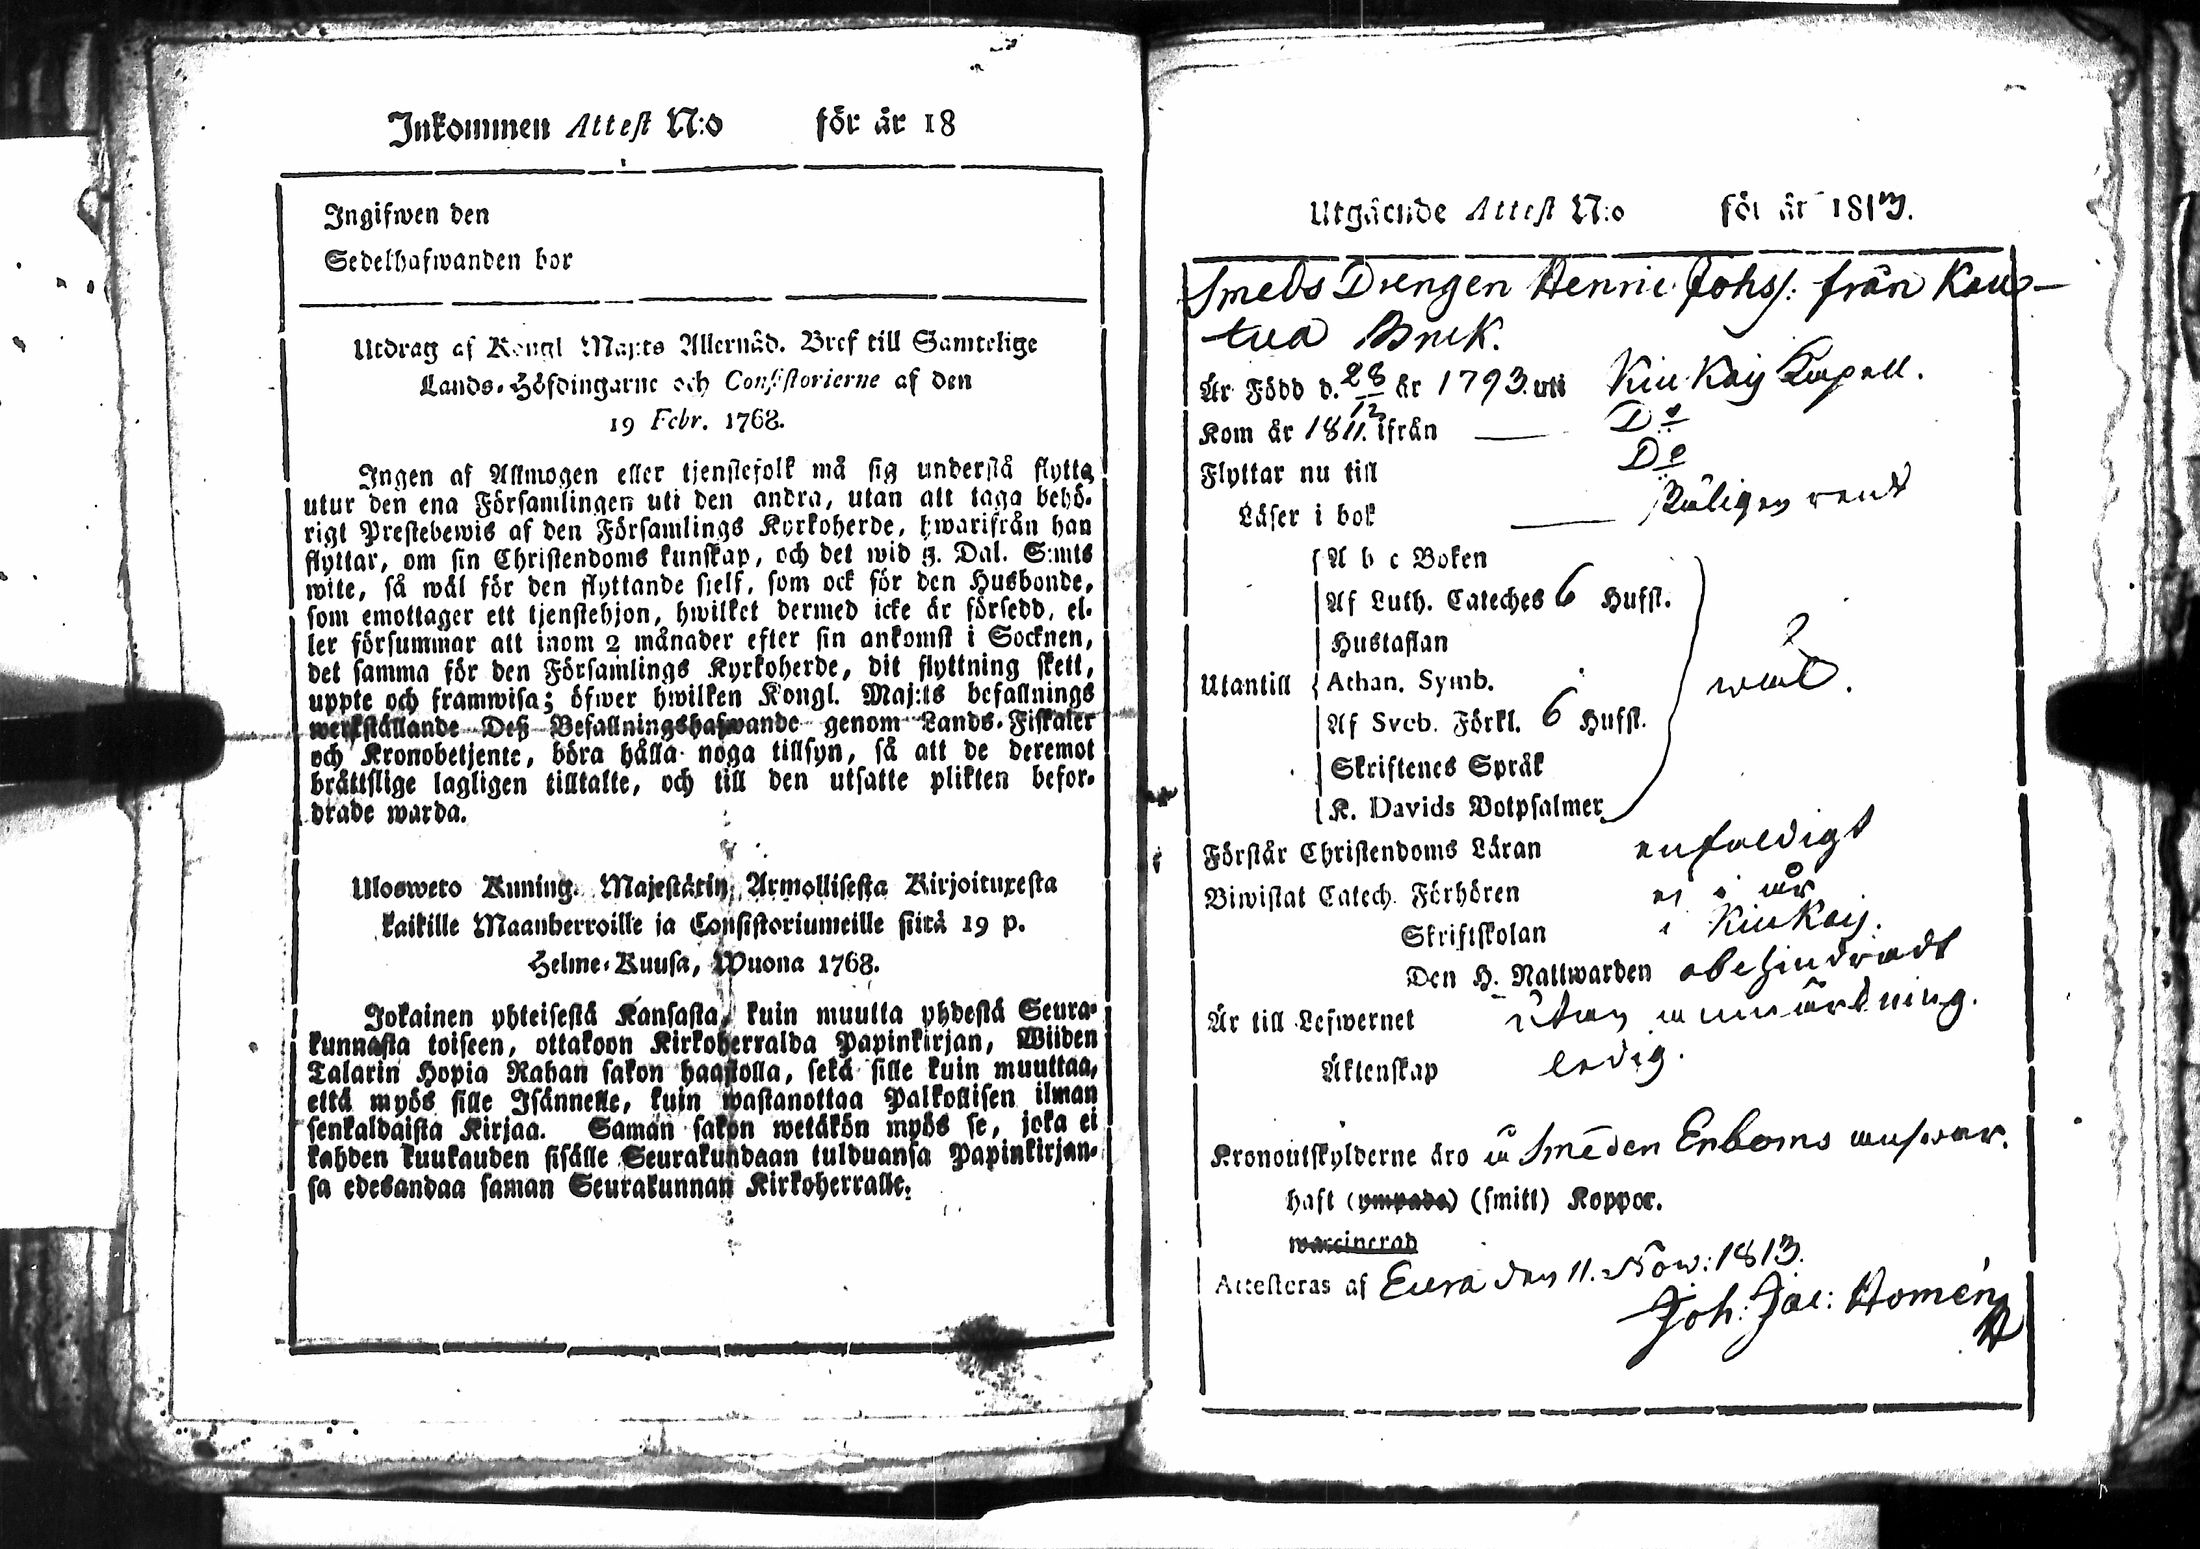 Inkommen Attest N:o för år 18
Ingifwen den
Sedelhafwanden bor
Utdrag af Kongl Maj:ts Allernåd. Bref till Samtelige
Lands-Höfdingarne och Consistorierne af den
19 Febr. 1768.
Ingen af Allmogen eller tjenstefolk må sig understå flytta
utur den ena Församlingen uti den andra, utan att taga behö-
rigt Prestebewis af den Församlings Kyrkoherde, hwarifrån han
flyttar, om sin Christendoms kunskap, och det wid 5. Dal. S:mts
wite, så wäl för den flyttande sielf, som ock för den Husbonde,
som emottager ett tjenstehjon, hwilket dermed icke är försedd, el-
ler försummar att inom 2 månader efter sin ankomst i Socknen,
det samma för den Församlings Kyrkoherde, dit flyttning skett,
uppte och framwisa; öfwer hwilken Kongl. Maj:ts befallnings
werkställande Deß Befallningshafwande genom Lands-Fiskaler
och Kronobetjente, böra hålla noga tillsyn, så att de deremot
bråttslige lagligen tilltalte, och till den utsatte plikten befor-
drade warda.
Uloswero Kuning. Majestätin Armollisesta Kirjoituxesta
kaikille Maanherroille ja Consistoriumeille siitä 19 p.
Helme-Kuusa, Wuona 1768.
Jokainen yhteisestä Kansasta, kuin muutta yhdestä Seura-
kunnasta toiseen, ottakoon Kirkoherralda Papinkirjan, Wiiden
Talarin Hopia Rahan sakon haastolla, sekä sille kuin muuttaa,
että myös sille Isännelle, kuin wastanottaa Palkollisen ilman
senkaldaista Kirjaa. Saman sakon wetäkön myös se, joka ei
kahden kuukauden sisälle Seurakundaan tulduansa Papinkirjan-
sa edesandaa saman Seurakunnan Kirkoherralle.
Utgående Attest N:o för år 1813.
Smeds Drengen Henric Johs/: från Kau-
tua Bruk.
Är Född d. 28/12 år 1793. uti Kiukais Capell.
Kom år 1811. ifrån — Do
Flyttar nu till Do
Läser i bok — rent
A b c Boken
Af Luth. Cateches 6 Hufst.
Hustaflan
Utantill Athan. Symb. wäl.
Af Sveb. Förkl. 6 Hufst.
Skriftenes Språk
K. Davids Botpsalmer
Förstår Christendoms Läran enfaldigt
Biwistat Catech. Förhören i år
Skriftskolan i Kiukais.
Den H. Nattwarden obehindradt
Är till Lefwernet utan anmärkning.
Äktenskap ledig.
Kronoutskylderne äro å Smeden Enboms answar.
haft (ympade) (smitt) Koppor.
waccinerad
Attesteras af Eura den 11. Now: 1813.
Joh: Jac: Homén